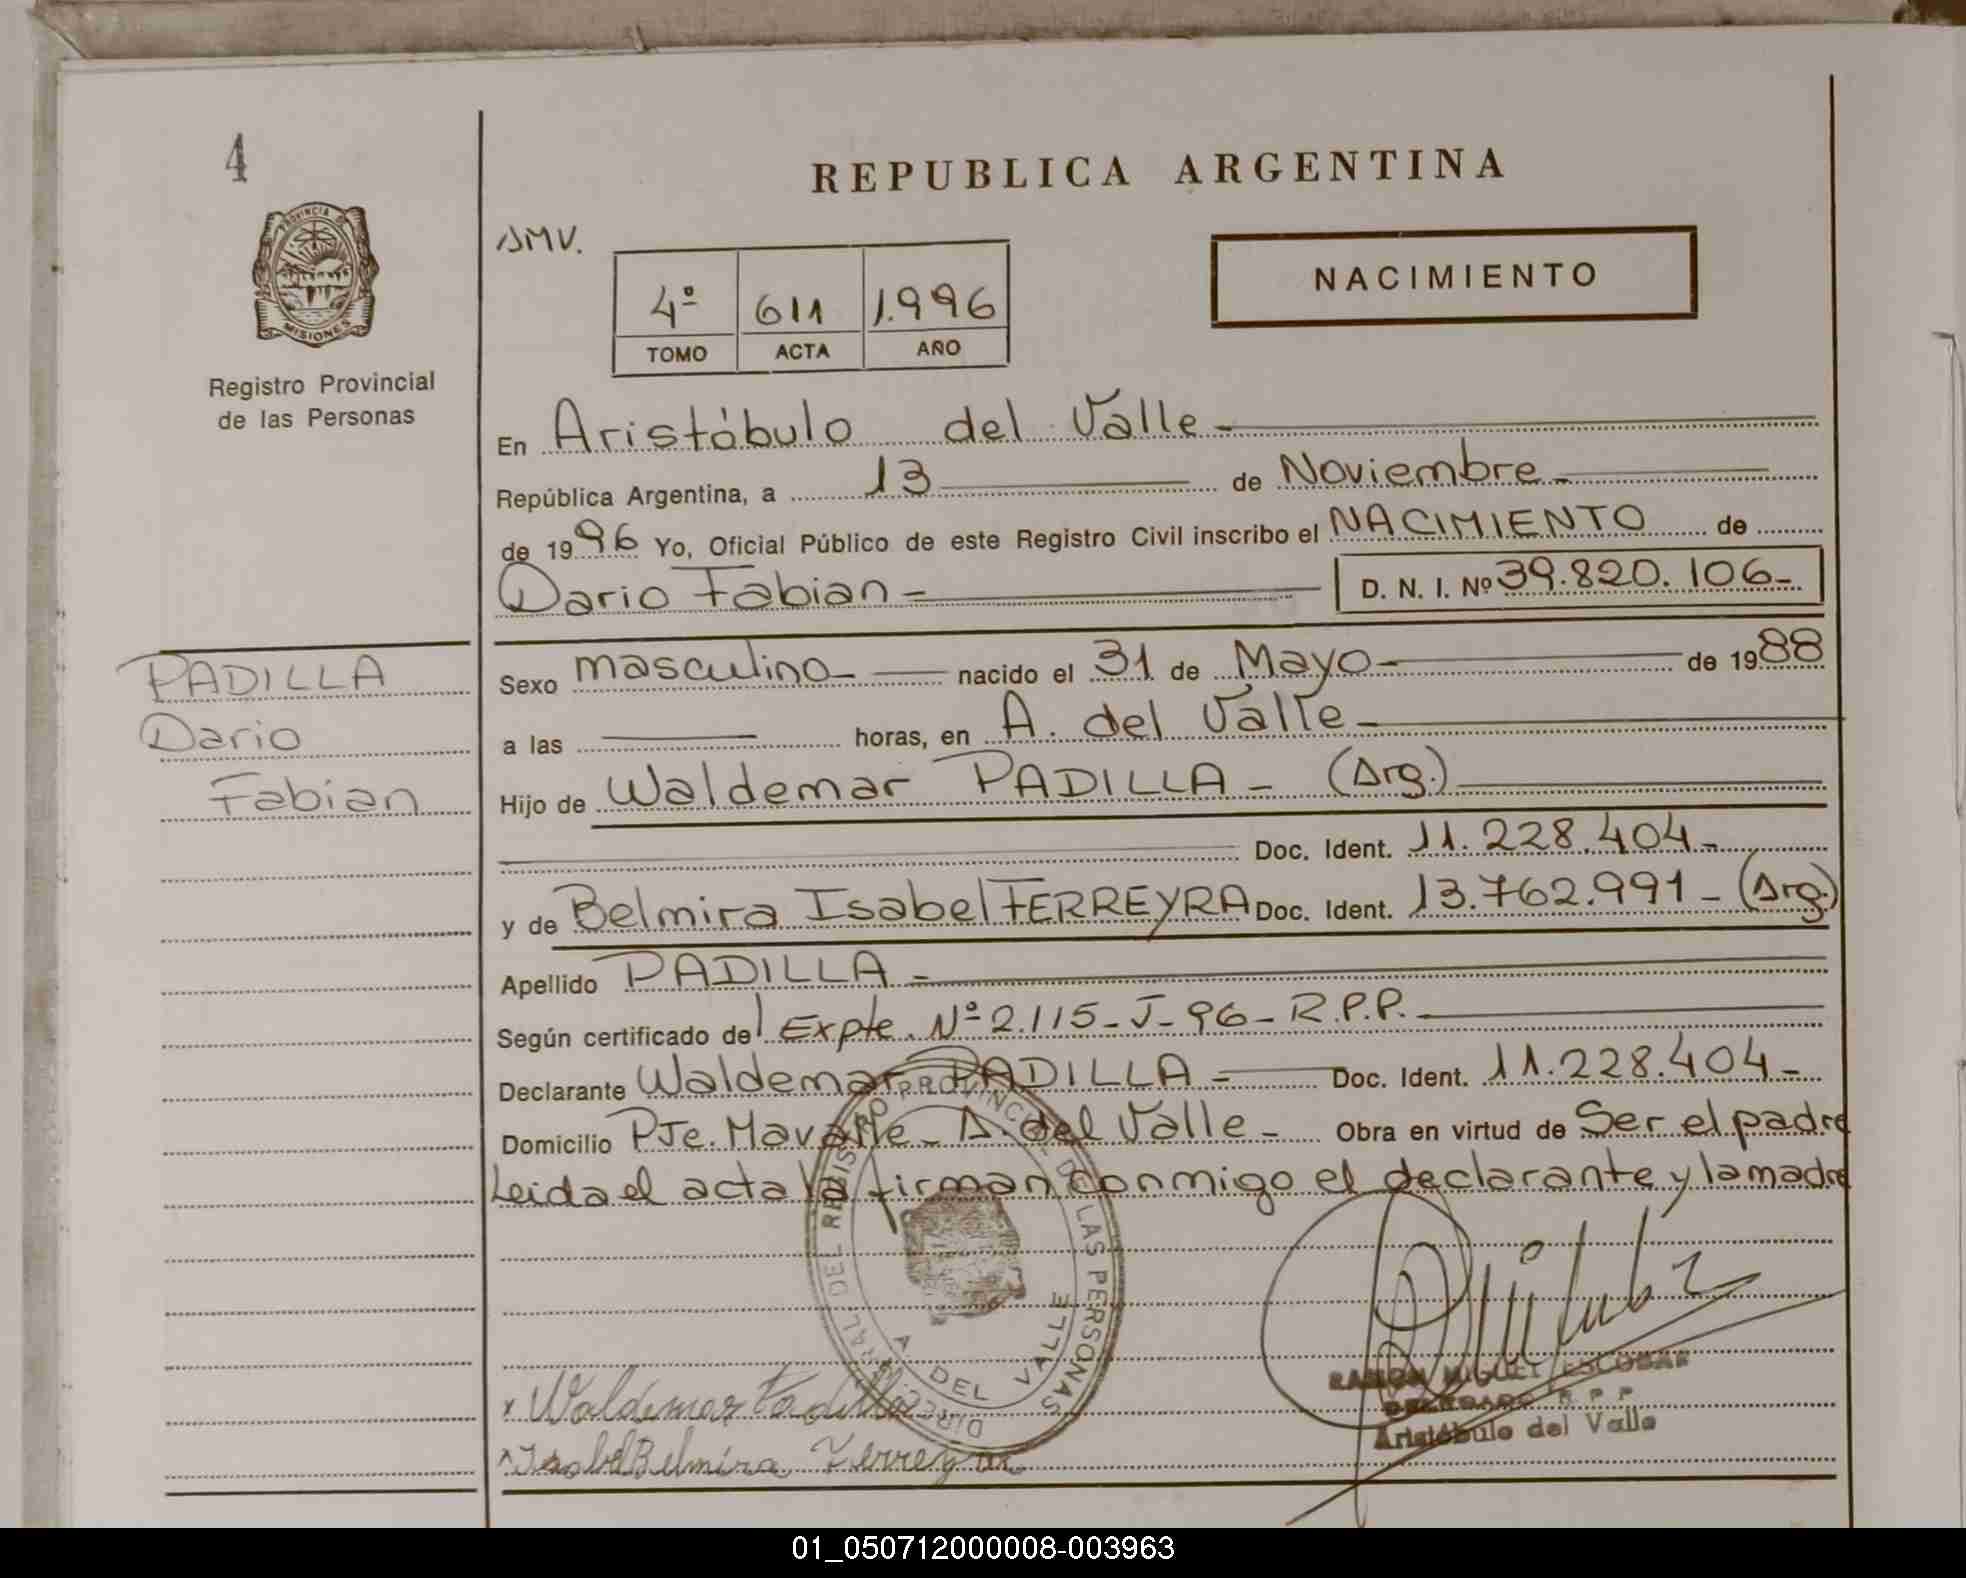 4
PROVINCIA DE
MISIONES
Registro Provincial
de las Personas
REPUBLICA ARGENTINA
NACIMIENTO
4º 611 1.996
TOMO ACTA AÑO
En Aristóbulo del Valle
República Argentina, a 13 de Noviembre
de 1996 Yo, Oficial Público de este Registro Civil inscribo el NACIMIENTO de
Dario Fabian D. N. I. Nº 39.820.106
PADILLA
Dario
Fabian
Sexo masculino nacido el 31 de Mayo de 1988
a las horas, en A. del Valle
Hijo de Waldemar PADILLA - (Arg.)
Doc. Ident. 11.228.404
y de Belmira Isabel FERREYRA Doc. Ident. 13.762.991 - (Arg.)
Apellido PADILLA
Según certificado de l Expte. Nº 2.115-J-96-R.P.P.
Declarante Waldemar PADILLA - Doc. Ident. 11.228.404
Domicilio PJe. A. del Valle - Obra en virtud de Ser el padre
Leida el acta la firman conmigo el declarante y la madre
DIRECC. GRAL. DEL REGISTRO PROVINCIAL DE LAS PERSONAS
A. DEL VALLE
RAMON MIGUEL ESCOBAR
DELEGADO R.P.P.
Aristóbulo del Valle
x Waldemar Padilla
x Isabel Belmira Ferreyra
01_050712000008-003963